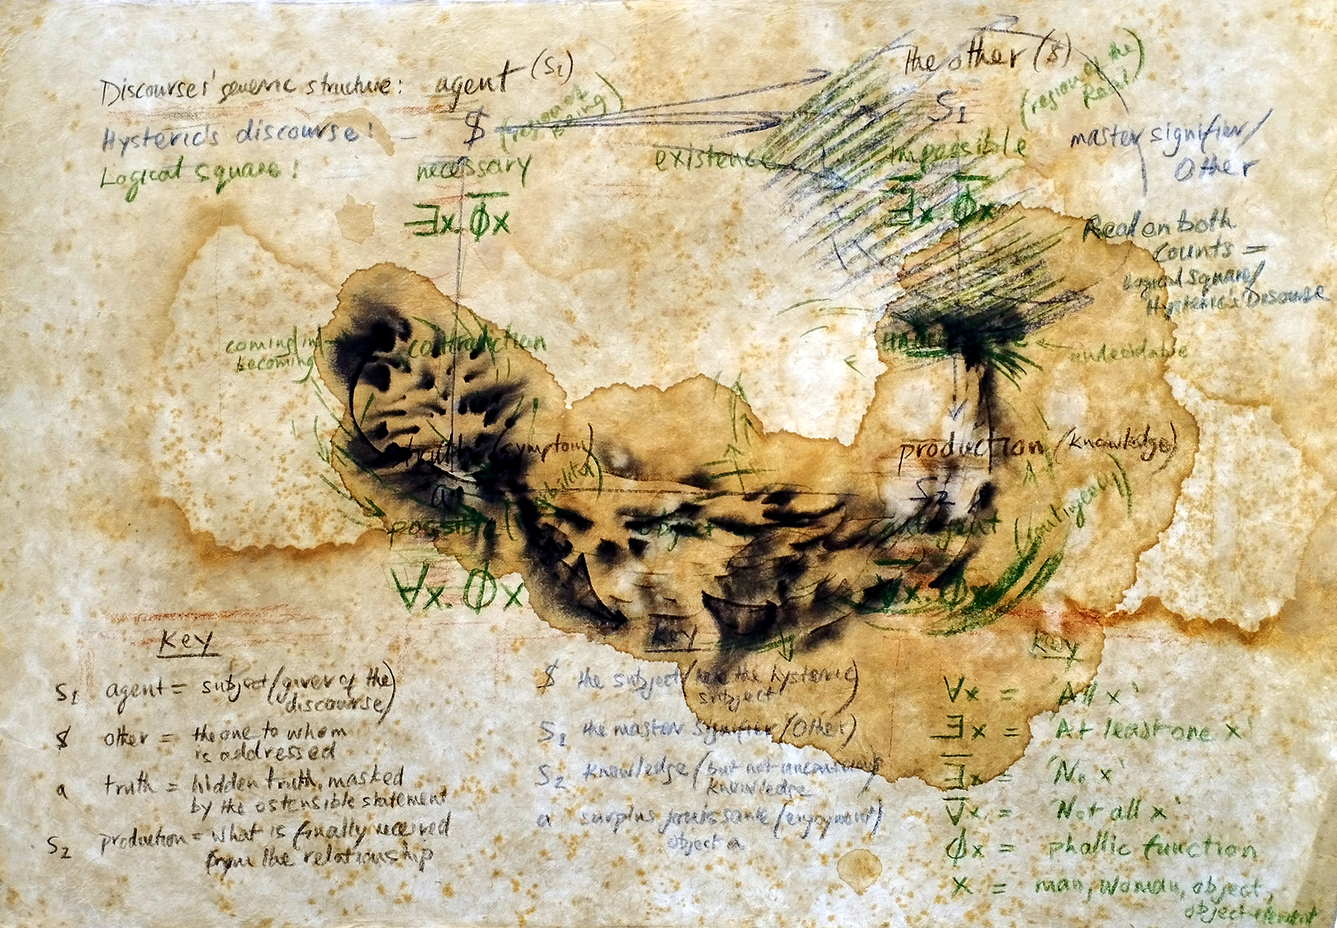 Discourses' generic structure:
agent (S1)
the other ($)
Hysteric's discourse!
$
S1
(region of being)
(region of the Real)
Logical square!
necessary
existence
impossible
∃x.Φ̅x
∃̅x.Φ̅x
master signifier/
Other
Real on both
Counts =
Logical square/
Hysteric's Discourse
coming in
becoming
contradiction
undecidable
truth (symptom)
production (knowledge)
a
S2
possible
(contingency)
∀x.Φx
Key
S1 agent = subject/(giver of the
discourse)
$ other = the one to whom
is addressed
a truth = hidden truth, masked
by the ostensible statement
S2 production = what is finally received
from the relationship
Key
$ the subject/(here the hysteric)
subject
S1 the master signifier (Other)
S2 knowledge/(but not unconscious
knowledge
a surplus jouissance/(enjoyment)
object a
Key
∀x = 'All x'
∃x = 'At least one x'
∃̅x = 'No x'
∀̅x = 'Not all x'
Φx = phallic function
x = man, woman, object,
object element